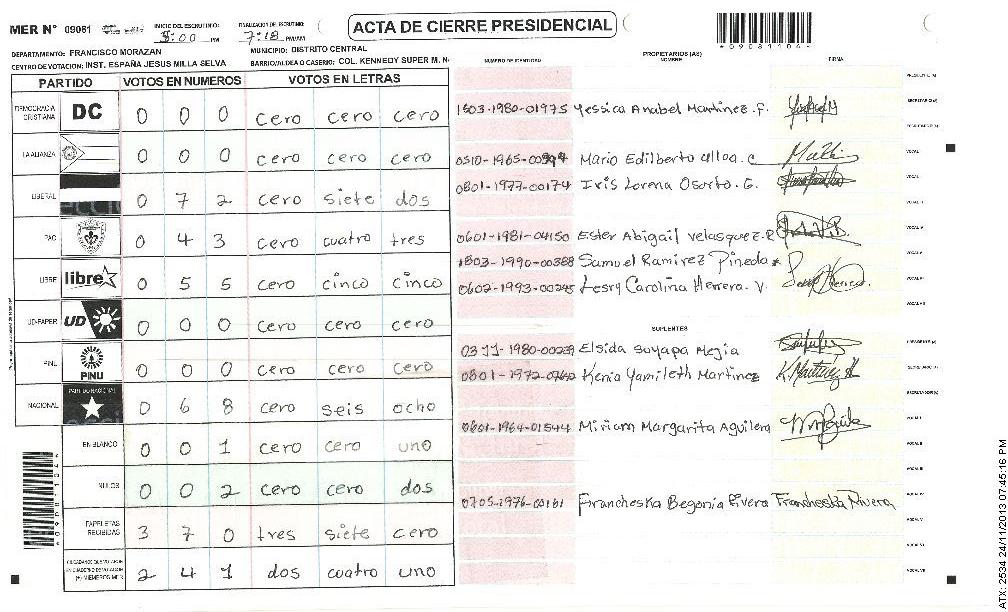 MER Nº 09081 INICIO DEL ESCRUTINIO: 5:00 PM FINALIZACION DEL ESCRUTINIO: 7:18 PM/AM
ACTA DE CIERRE PRESIDENCIAL
DEPARTAMENTO: FRANCISCO MORAZAN MUNICIPIO: DISTRITO CENTRAL
CENTRO DE VOTACION: INST. ESPAÑA JESUS MILLA SELVA BARRIO/ALDEA O CASERIO: COL. KENNEDY SUPER M. N
PARTIDO VOTOS EN NUMEROS VOTOS EN LETRAS
DEMOCRACIA CRISTIANA DC 0 0 0 cero cero cero
LA ALIANZA 0 0 0 cero cero cero
LIBERAL 0 7 2 cero siete dos
PAC 0 4 3 cero cuatro tres
LIBRE libre 0 5 5 cero cinco cinco
UD-FAPER UD 0 0 0 cero cero cero
PINU PINU 0 0 0 cero cero cero
NACIONAL PARTIDO NACIONAL 0 6 8 cero seis ocho
EN BLANCO 0 0 1 cero cero uno
NULOS 0 0 2 cero cero dos
PAPELETAS RECIBIDAS 3 7 0 tres siete cero
2 4 1 dos cuatro uno
NUMERO DE IDENTIDAD PROPIETARIOS (AS) NOMBRE FIRMA
1503-1980-01975 Yessica Anabel Martinez. F.
Mario Edilberto Ulloa. C
0801-1977-00174 Iris Lorena Osorto. G.
0601-1981-04150 Ester Abigail Velasquez. R
1803-1990-00388 Samuel Ramirez Pineda
0602-1993-00245 Lesry Carolina Herrera. V.
SUPLENTES
Elsida Soyapa Mejia
Kenia Yamileth Martinez
0801-1964-01544 Miriam Margarita Aguilera
0705-1976-00161 Francheska Begonia Rivera Francheska Rivera
ATX: 2534 24/11/2013 07:45:16 PM